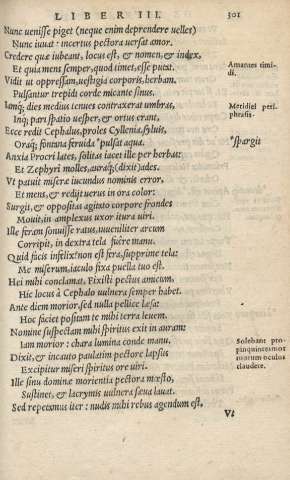 LIBER III. 301
Nunc uenisse piget (neque enim deprendere uelles)
Nunc iuuat: incertus pectora uersat amor.
Credere quæ iubeant, locus est, & nomen, & index,
Et quia mens semper, quod timet, esse putat.
Amantes timi-
di.
Vidit ut oppressam, uestigia corporis, herbam.
Pulsantur trepidi corde micante sinus.
Iamq; dies medius tenues contraxerat umbras,
Meridiei peri-
phrasis.
Inq; pari spatio uesper, & ortus erant,
Ecce redit Cephalus, proles Cyllenia, syluis,
Oraq; fontana feruida *pulsat aqua.
*spargit
Anxia Procri lates, solitas iacet ille per herbas:
Et Zephyri molles, auraq; (dixit) ades.
Vt patuit miseræ iucundus nominis error,
Et mens, & redijt uerus in ora color:
Surgit, & oppositas agitato corpore frondes
Mouit, in amplexus uxor itura uiri.
Ille feram sonuisse ratus, iuueniliter arcum
Corripit, in dextra tela fuêre manu.
Quid facis infelix? non est fera, supprime tela:
Me miserum, iaculo fixa puella tuo est.
Hei mihi conclamat, Fixisti pectus amicum,
Hic locus à Cephalo uulnera semper habet.
Ante diem morior, sed nulla pellice læsa:
Hoc faciet positam te mihi terra leuem.
Nomine suspectam mihi spiritus exit in auram:
Iam morior: chara lumina conde manu.
Solebant pro-
pinquissimos
morituum oculos
claudere.
Dixit, & incauto paulatim pectore lapsus
Excipitur miseri spiritus ore uiri.
Ille sinu dominæ morientia pectora mœsto,
Sustinet, & lacrymis uulnera sæua lauat.
Sed repetamus iter: nudis mihi rebus agendum est,
Vt